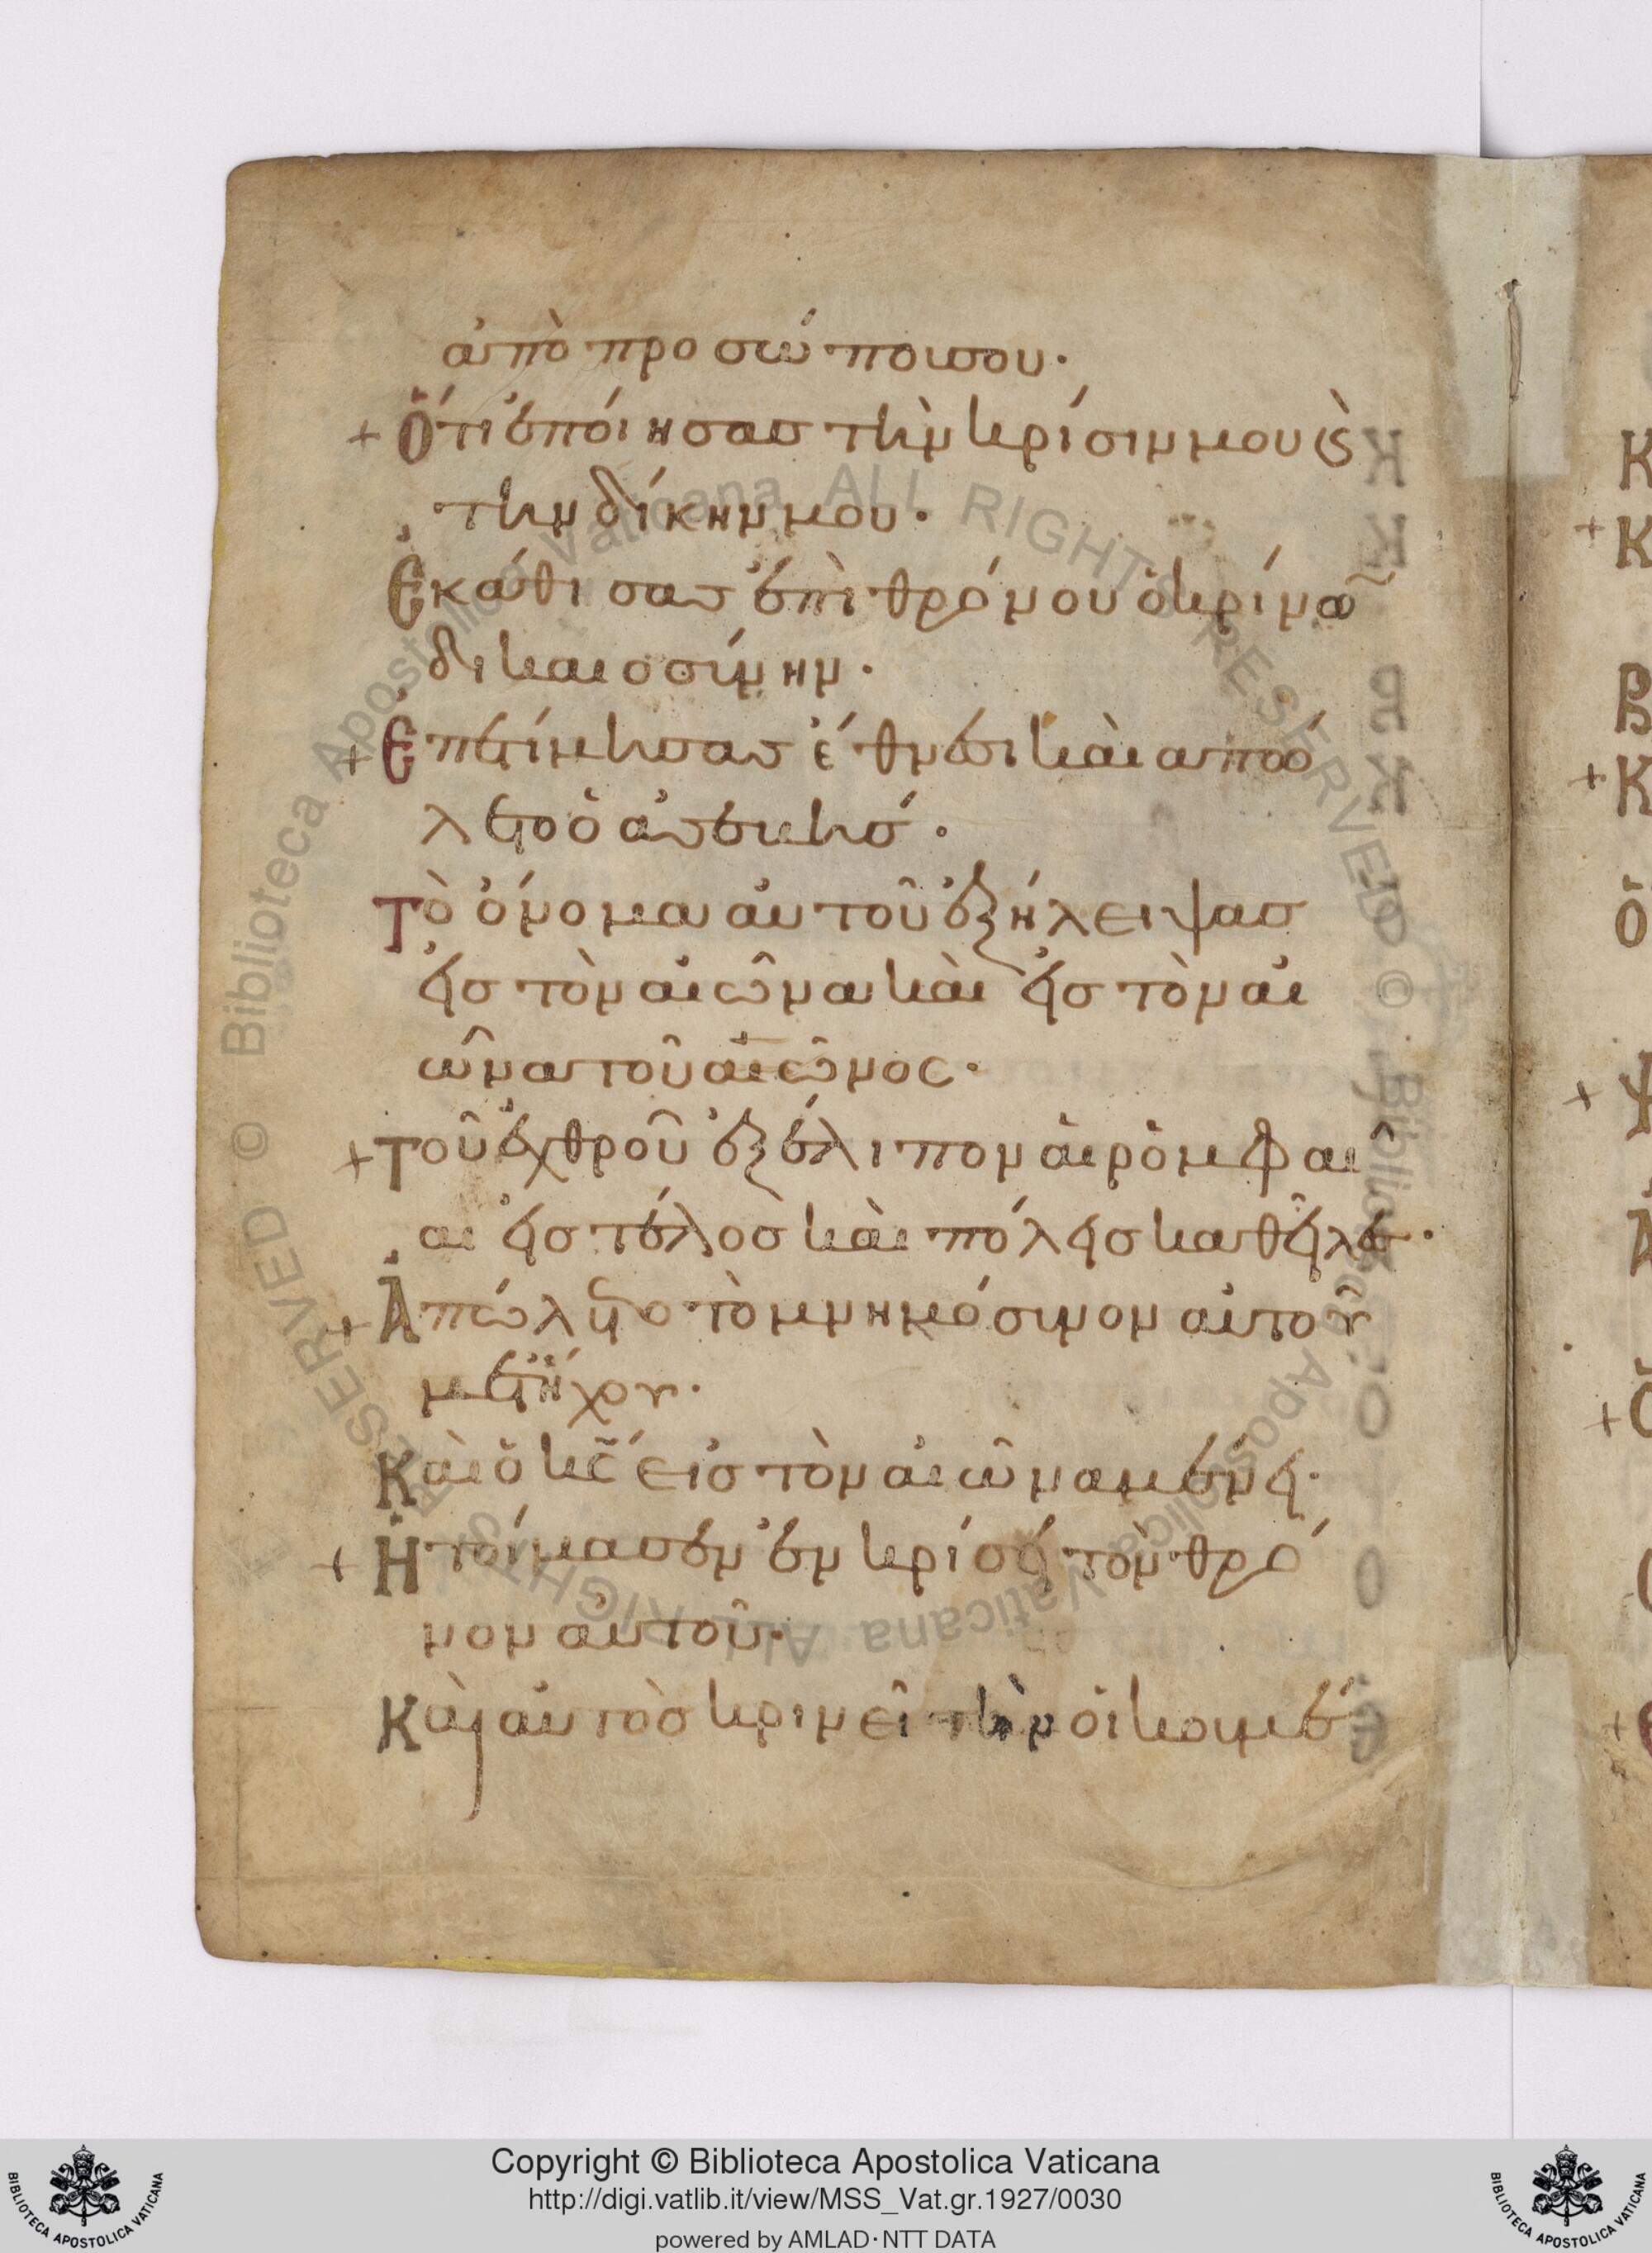 ἀπὸ προσώπου σου·
+ Ὅτι ἐποίησασ τὴν κρίσιν μου ϗ
την δίκην μου·
Ἐκάθισασ ἐπὶ θρόνου ὁ κρίνω̃
δικαιοσύνην·
+ Ἐπετίμησασ ἔθνεσι καὶ απώ
λετο ὁ ἀσεβησ́·
Τὸ ὄνομα αὐτοῦ ἐξήλειψασ
εἰσ τὸν αἰῶνα καὶ εἰσ τὸν αἰ
ῶνα τοῦ αἰῶνος·
+ Τοῦ ἐχθροῦ ἐξέλιπον αἱ ρὁμφαι
αι εἰσ τέλοσ καὶ πόλεισ καθεῖλεσ·
+ Ἀπώλετο τὸ μνημόσυνον αὐτοῦ
μετήχου·
Καὶ ὁ κ̅ς̅ εἰσ τὸν αἰῶνα μένει·
+ Ἡτοίμασεν ἐν κρίσει τὸν θρό
νον αὐτοῦ·
Καὶ αὐτὸσ κρινεῖ τὴν οἰκουμέ
Copyright © Biblioteca Apostolica Vaticana
http://digi.vatlib.it/view/MSS_Vat.gr.1927/0030
powered by AMLAD·NTT DATA
BIBLIOTECA APOSTOLICA VATICANA
BIBLIOTECA APOSTOLICA VATICANA
© Biblioteca Apostolica Vaticana ALL RIGHTS RESERVED © Biblioteca Apostolica Vaticana ALL RIGHTS RESERVED